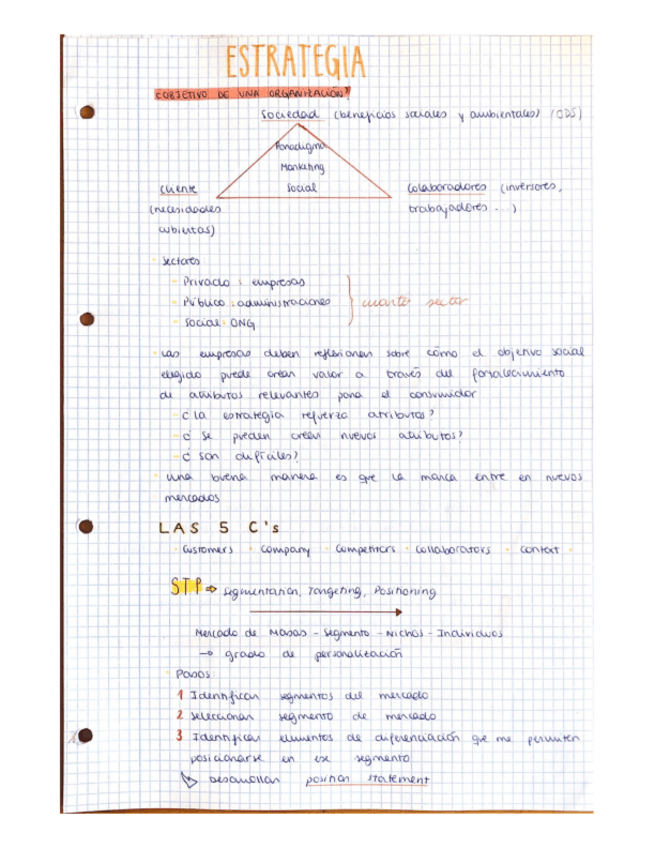 ESTRATEGIA
¿OBJETIVO DE UNA ORGANIZACIÓN?
Sociedad (beneficios sociales y ambientales) (ODS)
Paradigma
Marketing
Social
Cliente
(necesidades
cubiertas)
Colaboradores (inversores,
trabajadores ...)
· Sectores
- Privado : empresas
- Público : administraciones
- Social: ONG
cuarto sector
· Las empresas deben reflexionar sobre cómo el objetivo social
elegido puede crear valor a través del fortalecimiento
de atributos relevantes para el consumidor
- ¿ la estrategia refuerza atributos?
- ¿ se pueden crear nuevos atributos?
- ¿ son difíciles?
· una buena manera es que la marca entre en nuevos
mercados
LAS 5 C's
· Customers · Company · Competitors · Collaborators · Context ·
STP ⇨ Segmentation, Targeting, Positioning
Mercado de Masas - Segmento - Nichos - Individuos
→ grado de personalización
· Pasos:
1 Identifican segmentos del mercado
2 Seleccionan segmento de mercado
3 Identifican elementos de diferenciación que me permiten
posicionarse en ese segmento
↳ Desarrollan position statement